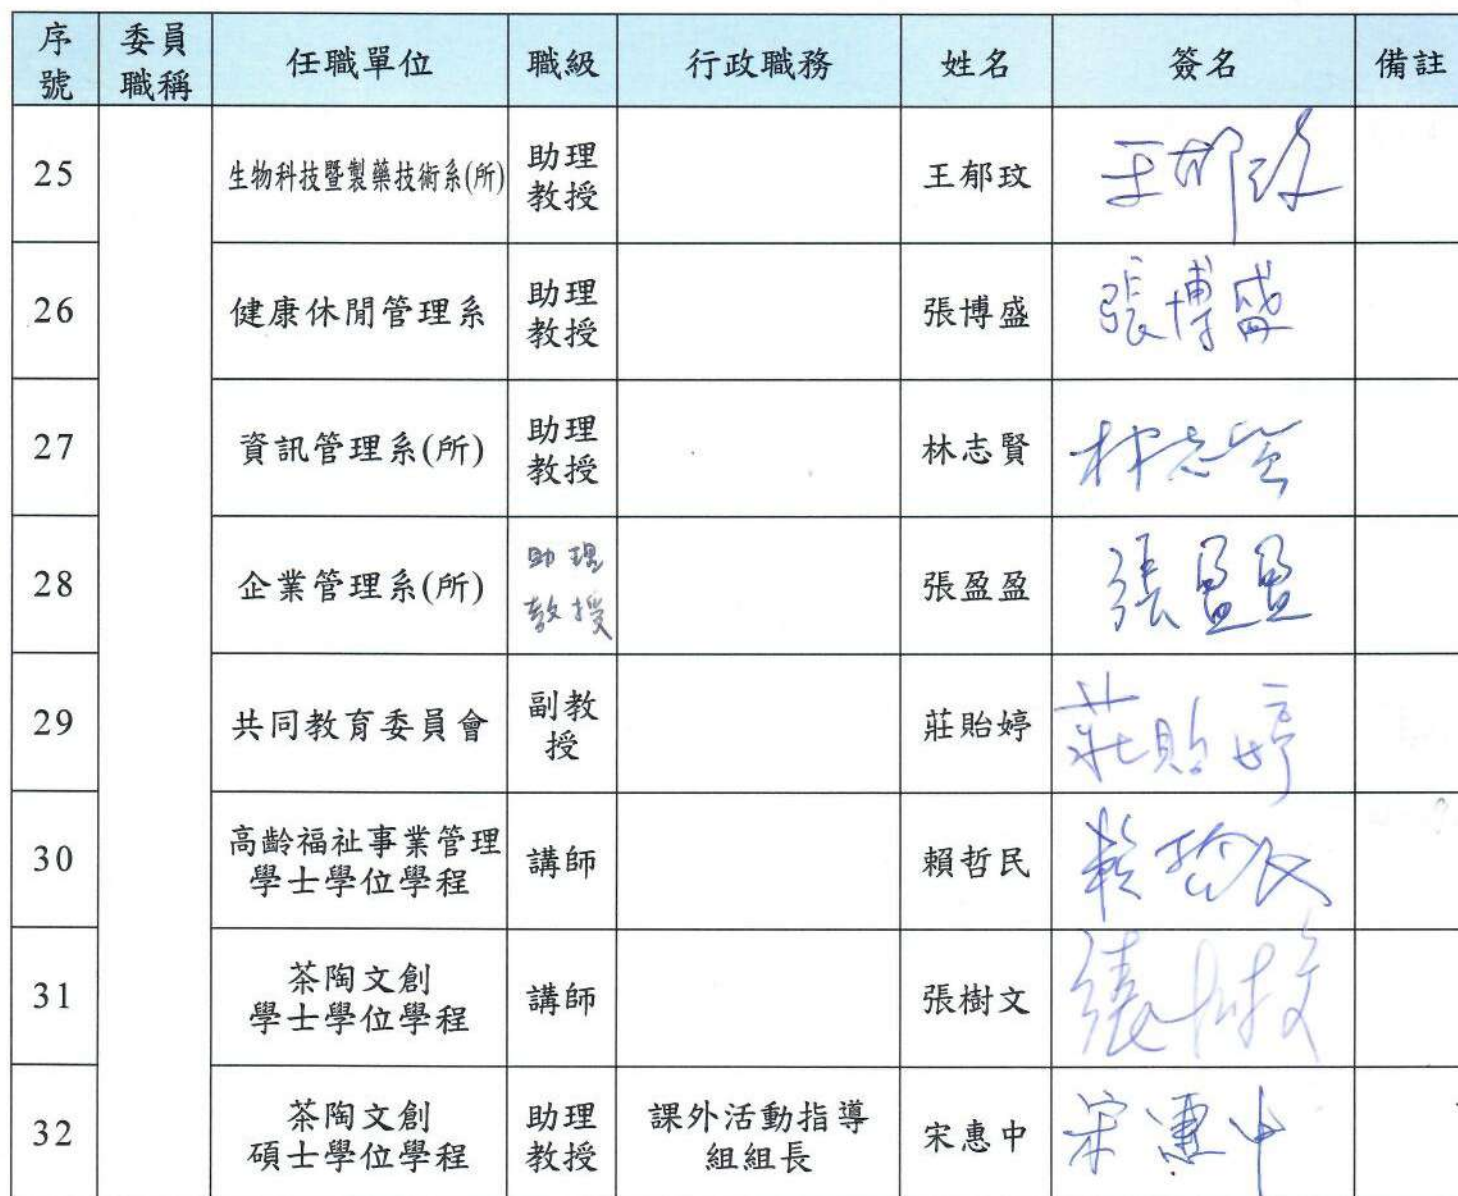 序號 委員職稱 任職單位 職級 行政職務 姓名 簽名 備註
25 生物科技暨製藥技術系(所) 助理教授 王郁玟 王郁玟
26 健康休閒管理系 助理教授 張博盛 張博盛
27 資訊管理系(所) 助理教授 林志賢 林志賢
28 企業管理系(所) 助理教授 張盈盈 張盈盈
29 共同教育委員會 副教授 莊貽婷 莊貽婷
30 高齡福祉事業管理學士學位學程 講師 賴哲民 賴哲民
31 茶陶文創學士學位學程 講師 張樹文 張樹文
32 茶陶文創碩士學位學程 助理教授 課外活動指導組組長 宋惠中 宋惠中